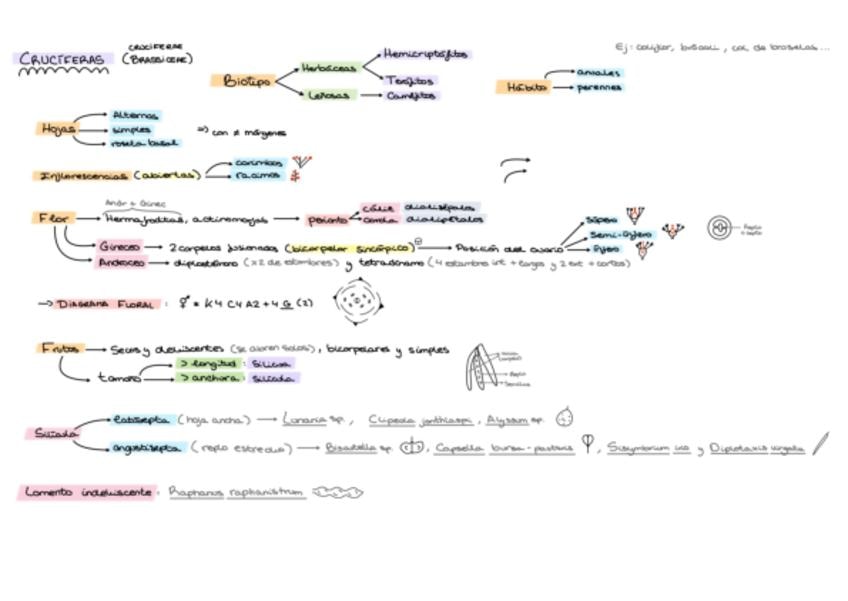 CRUCÍFERAS CRUCÍFERAE (BRASSICEAE)
Ej: coliflor, brócoli, col de bruselas...
Biotipo → Herbáceas → Hemicriptófitos
Terófitos
Leñosas → Caméfitos
Hábito → anuales
perennes
Hojas → Alternas
simples
roseta basal
=> con ≠ márgenes
Inflorescencias (abiertas) → corimbos
racimos
Andr + Ginec
Flor → Hermafroditas, actinomorfas → perianto cáliz dialisépalo
corola dialipétalos
Gineceo → 2 carpelos fusionados (bicarpelar sincárpico) → Posición del ovario → súpero
semi-ínfero
ínfero
Androceo → diplostémono (x2 de estambres) y tetradínamo (4 estambres int + largos y 2 ext + cortos)
→ DIAGRAMA FLORAL: ⚥ * K4 C4 A2+4 G (2)
Frutos → Secos y dehiscentes (se abren solos), bicarpelares y simples
tamaño → > longitud: Silicua
> anchura: Silícula
Replo
Semillas
Silícula → latisepta (hoja ancha) → Lunaria sp., Clipeola jonthlaspi, Alyssum sp.
angustisepta (replo estrecho) → Biscutella sp., Capsella bursa-pastoris, Sisymbrium irio y Diplotaxis virgata
Lomento indehiscente: Raphanus raphanistrum